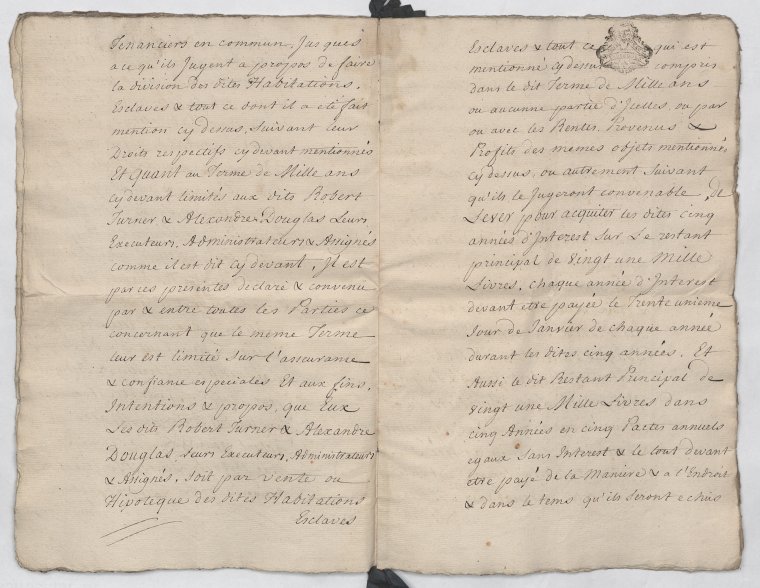 Tenanciers en commun, Jusques
a ce qu'ils Jugent a propos de faire
la division des dites Habitations,
Esclaves & tout ce dont il a été fait
mention cy dessus, suivant leur
Droits respectifs cydevant mentionnés
Et Quant au Terme de Mille ans
cydevant limités aux dits Robert
Turner, & Alexandre Douglas Leurs
Executeurs, Administrateurs & Assignés
comme il est dit cy devant, Il est
par ces presentes declaré & convenu
par & entre toutes les Parties ce
concernant que le même Terme
leur est limité sur l'assurance
& confiance especiales Et aux fins,
Intentions & propos, que Eux
Les dits Robert Turner & Alexandre
Douglas, leurs Executeurs, Administrateurs
& Assignés, soit par vente ou
Hipoteque des dites Habitations
Esclaves
Esclaves & tout ce qui est
mentionné cy dessus compris
dans le dit Terme de Mille ans
ou aucunne partie d'Icelles, ou par
ou avec les Rentes, Provenus &
Profits des memes objets mentionnés
cy dessus, ou autrement suivant
qu'ils le Jugeront convenable, de
Lever pour acquiter les dites cinq
années d'Interest sur Le restant
principal de vingt une Mille
Livres, chaque année d'Interest
devant etre payée le Trente unieme
Jour de Janvier de chaque année
durant les dites cinq années, Et
Aussi le dit Restant Principal de
vingt une Mille Livres dans
cinq Années en cinq Pactes annuels
egaux sans Interest & le tout devant
etre payé de la Maniere & a l'Endroit
& dans le tems qu'ils seront echus